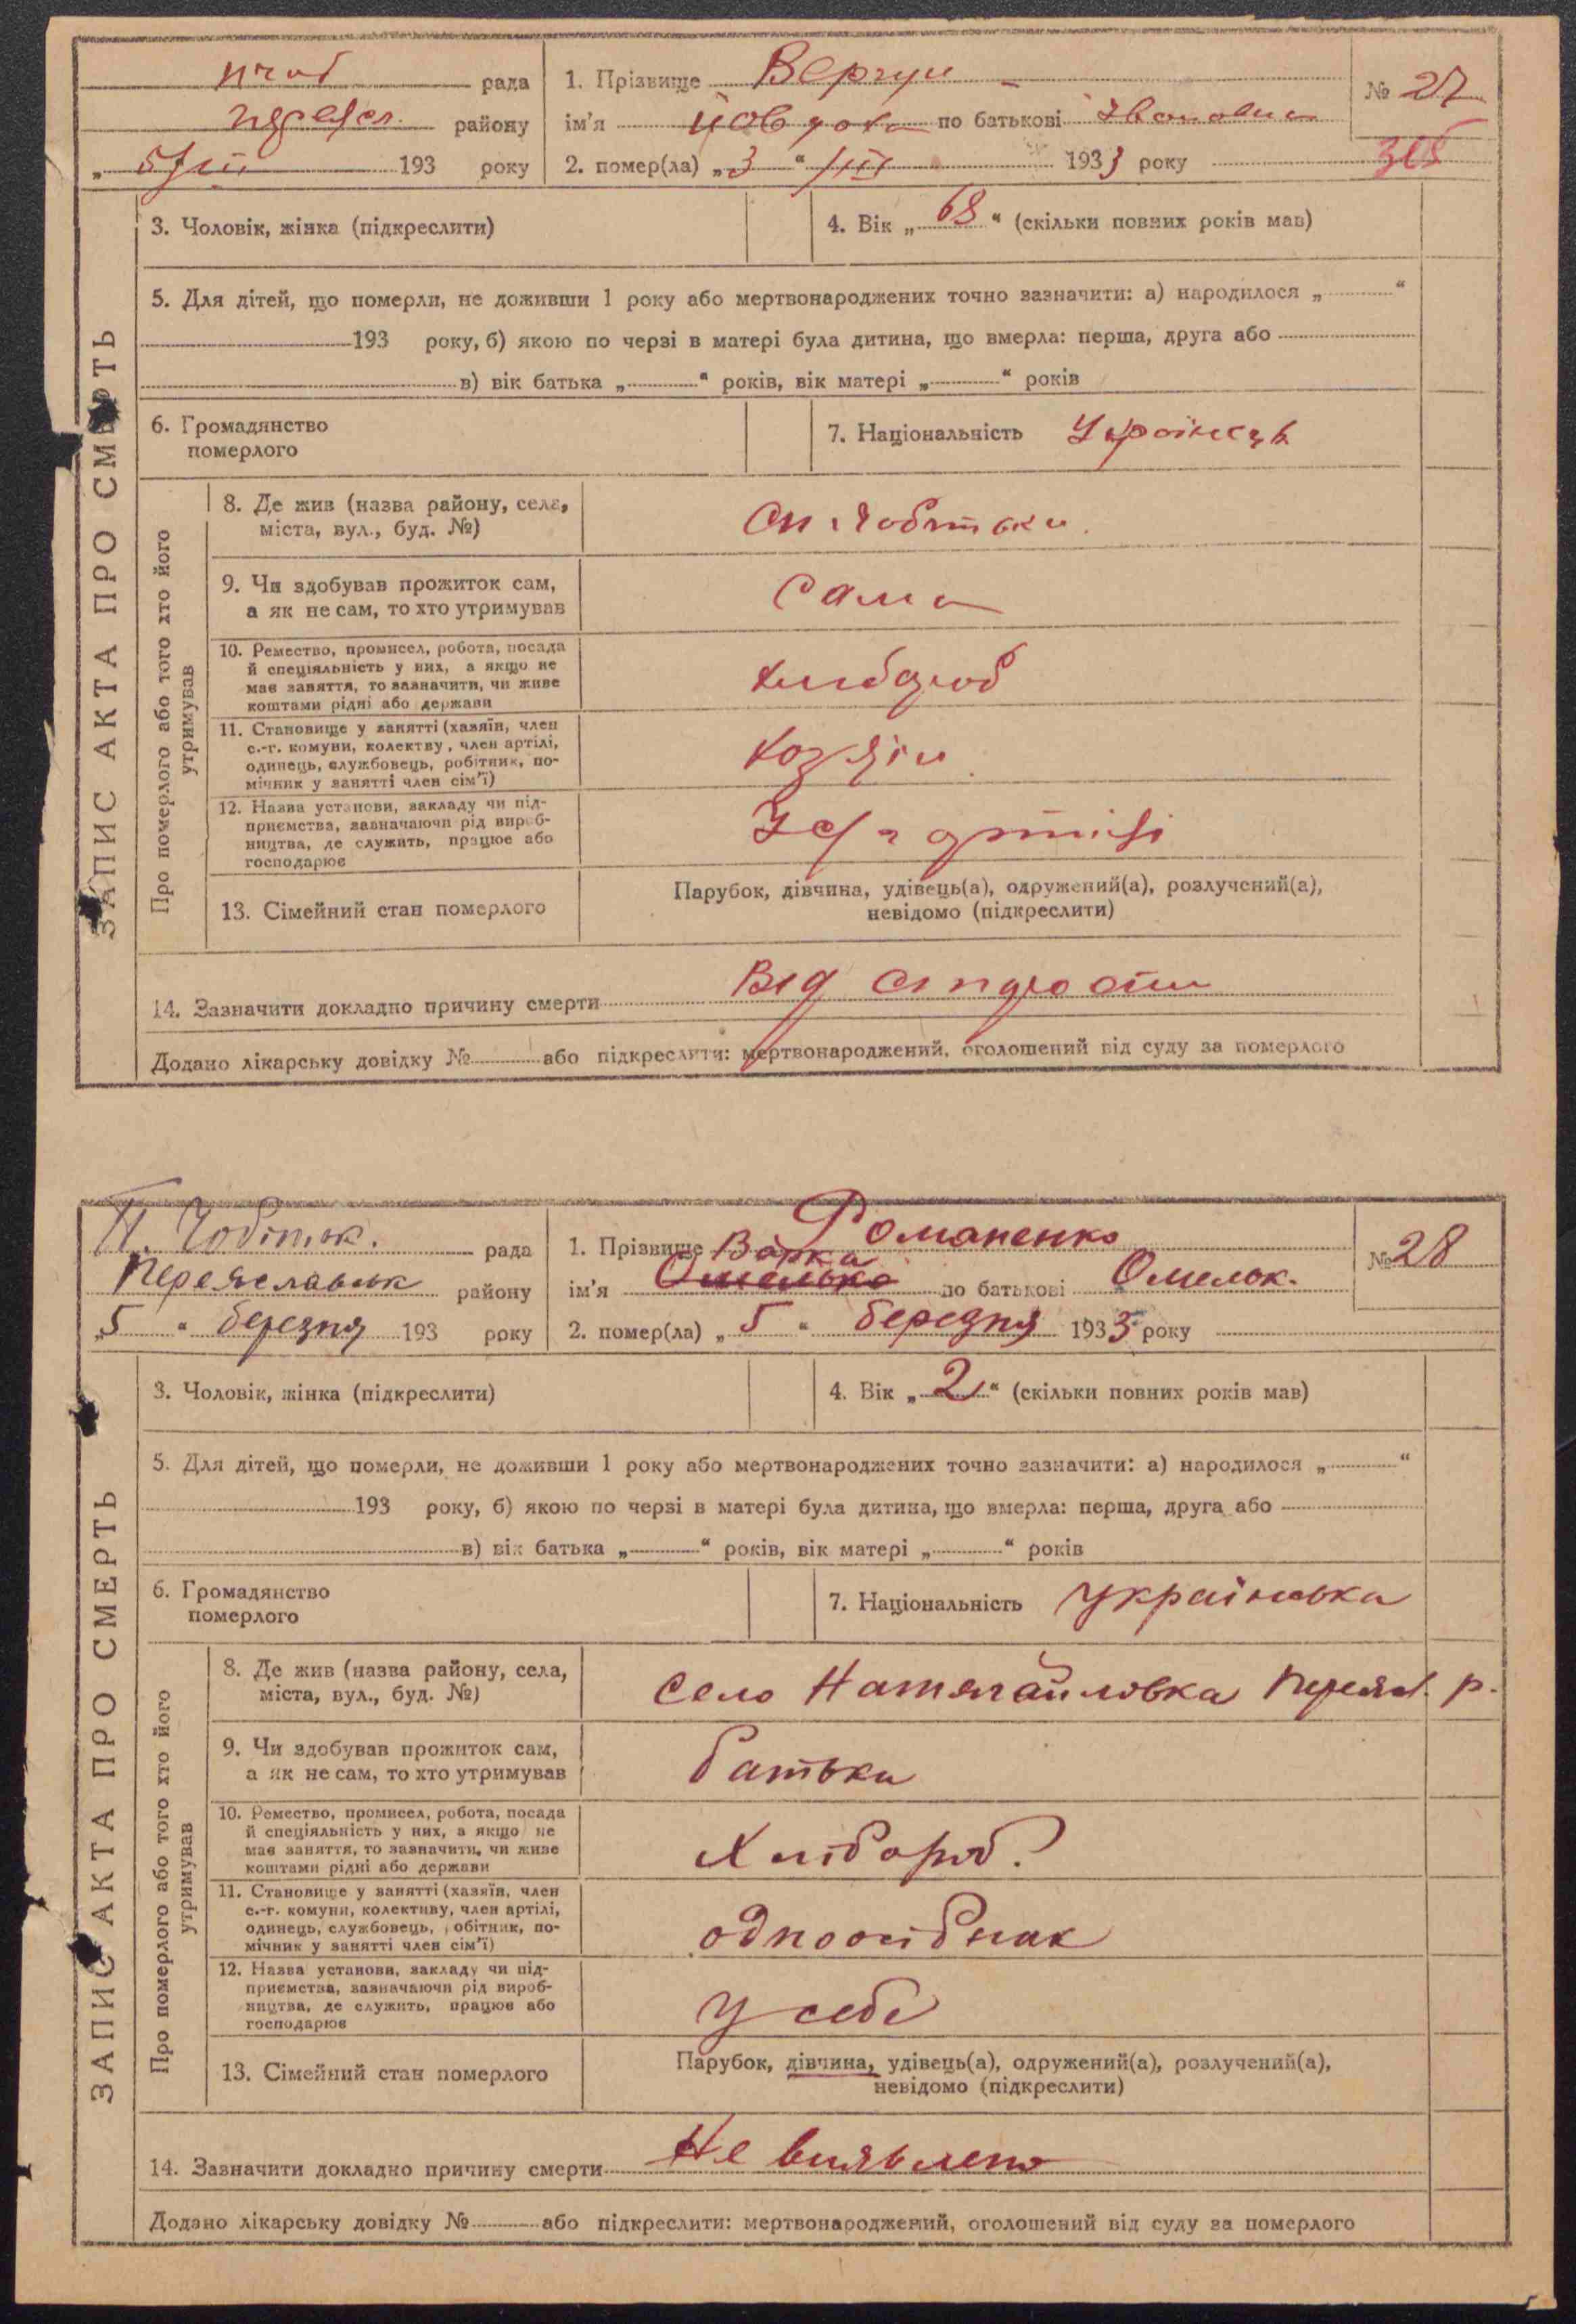 рада
району
5/III 193 року
1. Прізвище Вергун
ім'я Йовдоха по батькові Івановна
2. помер(ла) „3“ /III 1933 року
№ 27
ЗАПИС АКТА ПРО СМЕРТЬ
3. Чоловік, жінка (підкреслити)
4. Вік „68“ (скільки повних років мав)
5. Для дітей, що померли, не доживши 1 року або мертвонароджених точно зазначити: а) народилося „ “
193 року, б) якою по черзі в матері була дитина, що вмерла: перша, друга або
в) вік батька „ “ років, вік матері „ “ років
6. Громадянство
померлого
7. Національність Українець
Про померлого або того хто його
утримував
8. Де жив (назва району, села,
міста, вул., буд. №)
9. Чи здобував прожиток сам,
а як не сам, то хто утримував
сама
10. Ремество, промисел, робота, посада
й спеціяльність у них, а якщо не
має заняття, то зазначити, чи живе
коштами рідні або держави
11. Становище у занятті (хазяїн, член
с.-г. комуни, колективу, член артілі,
одинець, службовець, робітник, по-
мічник у занятті член сім'ї)
12. Назва установи, закладу чи під-
приємства, зазначаючи рід вироб-
ництва, де служить, працює або
господарює
13. Сімейний стан померлого
Парубок, дівчина, удівець(а), одружений(а), розлучений(а),
невідомо (підкреслити)
14. Зазначити докладно причину смерти Від
Додано лікарську довідку № або підкреслити: мертвонароджений, оголошений від суду за померлого
П. Чобітьк. рада
Переяславськ району
„5“ березня 193 року
1. Прізвище Романенко
Варка
ім'я Омелько по батькові Омельк.
2. помер(ла) „5“ березня 1933 року
№ 28
ЗАПИС АКТА ПРО СМЕРТЬ
3. Чоловік, жінка (підкреслити)
4. Вік „2“ (скільки повних років мав)
5. Для дітей, що померли, не доживши 1 року або мертвонароджених точно зазначити: а) народилося „ “
193 року, б) якою по черзі в матері була дитина, що вмерла: перша, друга або
в) вік батька „ “ років, вік матері „ “ років
6. Громадянство
померлого
7. Національність українька
Про померлого або того хто його
утримував
8. Де жив (назва району, села,
міста, вул., буд. №)
село Натягайловка Переясл. р.
9. Чи здобував прожиток сам,
а як не сам, то хто утримував
батьки
10. Ремество, промисел, робота, посада
й спеціяльність у них, а якщо не
має заняття, то зазначити, чи живе
коштами рідні або держави
Хлібороб.
11. Становище у занятті (хазяїн, член
с.-г. комуни, колективу, член артілі,
одинець, службовець, робітник, по-
мічник у занятті член сім'ї)
одноосібник
12. Назва установи, закладу чи під-
приємства, зазначаючи рід вироб-
ництва, де служить, працює або
господарює
у себе
13. Сімейний стан померлого
Парубок, дівчина, удівець(а), одружений(а), розлучений(а),
невідомо (підкреслити)
14. Зазначити докладно причину смерти Не виявлено
Додано лікарську довідку № або підкреслити: мертвонароджений, оголошений від суду за померлого